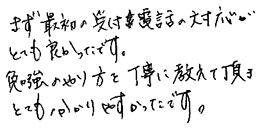 まず最初の受付電話の対応が
とても良かったです。
勉強のやり方を丁寧に教えて頂き
とても分かりやすかったです。